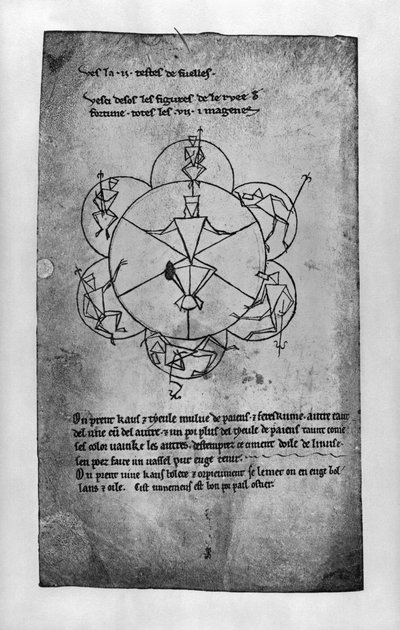 Ves la .ii. testes de fuelles.
Vesci desos les figures de le ruee d
fortune . totes les .vii. imagenes
On prent kaus ⁊ tyeule mulue de paiens . ⁊ feres kume . autretant
del une cū del autre . ⁊ un poi plus del tyeule de paiens tant come
ses color vainke les autres . destemprez ce ciment doile de linuse-
sen poez faire un vassel pur euge tenir .
On prent vive kaus bolete ⁊ orpieument se le met on en euge bol
lans ⁊ oile . Cist unnemens est bon por poil oster .